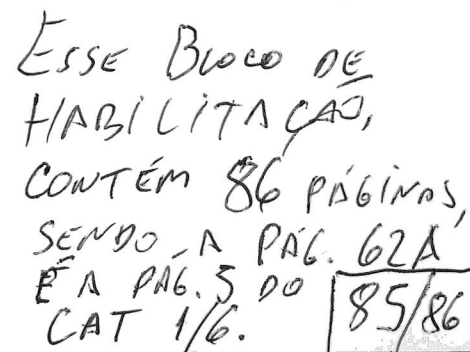 ESSE BLOCO DE
HABILITAÇÃO,
CONTÉM 86 PÁGINAS,
SENDO A PÁG. 62A
É A PÁG. 5 DO
CAT 1/6.
85/86